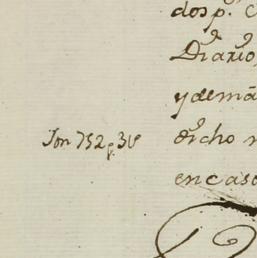 dos p.
Diario,
y demá
Son 752 p. 3
dicho
en caso